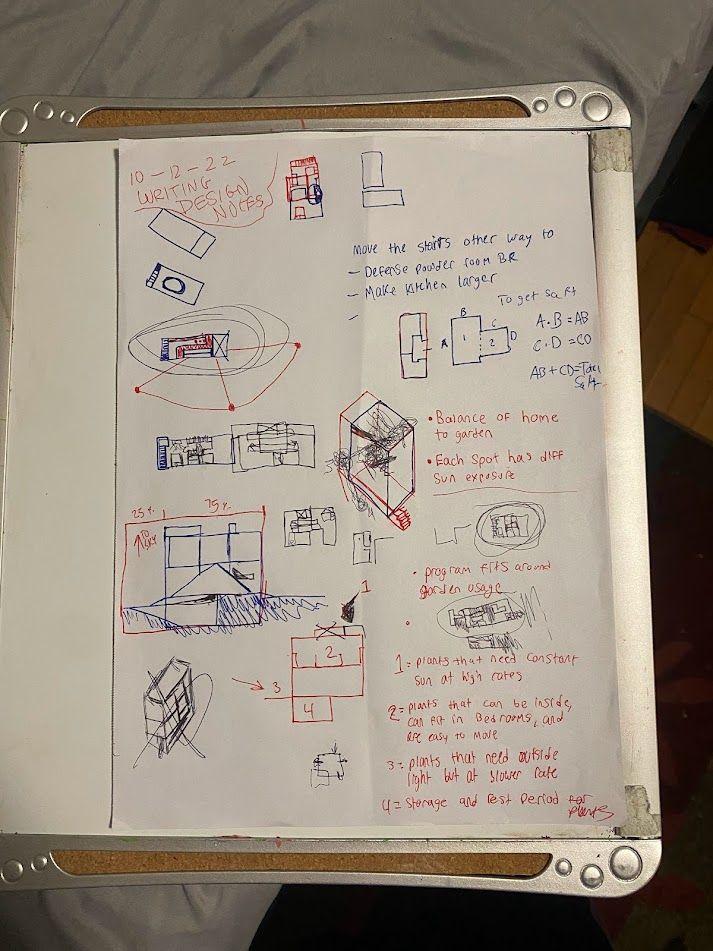 10-12-22
WRITING
DESIGN
NOTES
Move the stairs other way to
- Defense powder room BR
- Make kitchen larger
-
To get sq ft
A
B
C
D
1
2
A·B = AB
C·D = CD
AB + CD = Total
Sq ft
• Balance of home
to garden
• Each spot has diff
sun exposure
25%
75%
TO
SKY
• program fits around
garden usage
•
1
2
3
4
1 = plants that need constant
sun at high rates
2 = plants that can be inside,
can fit in Bedrooms, and
are easy to move
3 = plants that need outside
light but at slower rate
4 = Storage and Rest Period for
plants